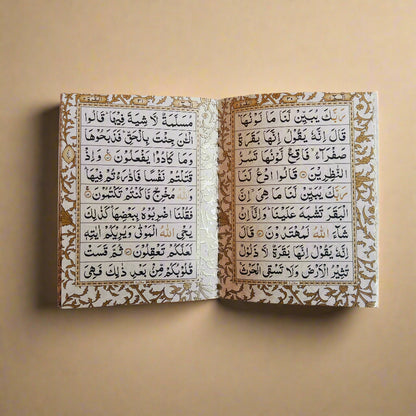 رَبَّكَ يُبَيِّنْ لَنَا مَا لَوْنُهَا
قَالَ اِنَّهٗ يَقُوْلُ اِنَّهَا بَقَرَةٌ
صَفْرَآءُ فَاقِعٌ لَّوْنُهَا تَسُرُّ
النّٰظِرِيْنَ قَالُوا ادْعُ لَنَا
رَبَّكَ يُبَيِّنْ لَّنَا مَا هِىَ اِنَّ
الْبَقَرَ تَشٰبَهَ عَلَيْنَا وَاِنَّآ اِنْ
شَآءَ اللّٰهُ لَمُهْتَدُوْنَ قَالَ
اِنَّهٗ يَقُوْلُ اِنَّهَا بَقَرَةٌ لَّا ذَلُوْلٌ
تُثِيْرُ الْاَرْضَ وَلَا تَسْقِى الْحَرْثَ
مُسَلَّمَةٌ لَّا شِيَةَ فِيْهَا قَالُوا
الْـٰٔنَ جِئْتَ بِالْحَقِّ فَذَبَحُوْهَا
وَمَا كَادُوْا يَفْعَلُوْنَ وَاِذْ
قَتَلْتُمْ نَفْسًا فَادّٰرَءْتُمْ فِيْهَا
وَاللّٰهُ مُخْرِجٌ مَّا كُنْتُمْ تَكْتُمُوْنَ
فَقُلْنَا اضْرِبُوْهُ بِبَعْضِهَا كَذٰلِكَ
يُحْىِ اللّٰهُ الْمَوْتٰى وَيُرِيْكُمْ اٰيٰتِهٖ
لَعَلَّكُمْ تَعْقِلُوْنَ ثُمَّ قَسَتْ
قُلُوْبُكُمْ مِّنْ بَعْدِ ذٰلِكَ فَهِىَ